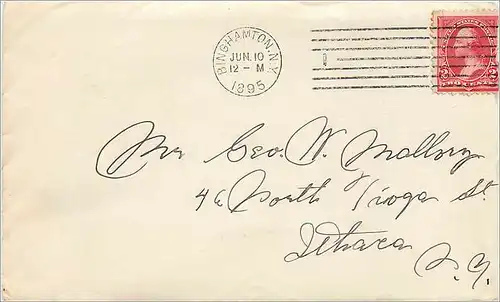 BINGHAMTON, N.Y.
JUN. 10
12 - M
1895
2 TWO CENTS 2
Mr Geo. W. Mallory
46 North Tioga St.
Ithaca
N.Y.